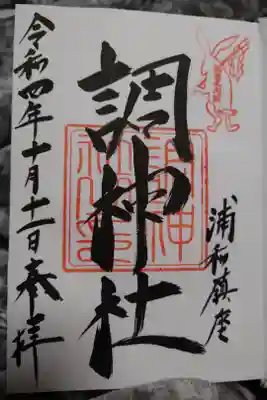 浦和鎮座
調神社
令和四年十月十二日奉拝